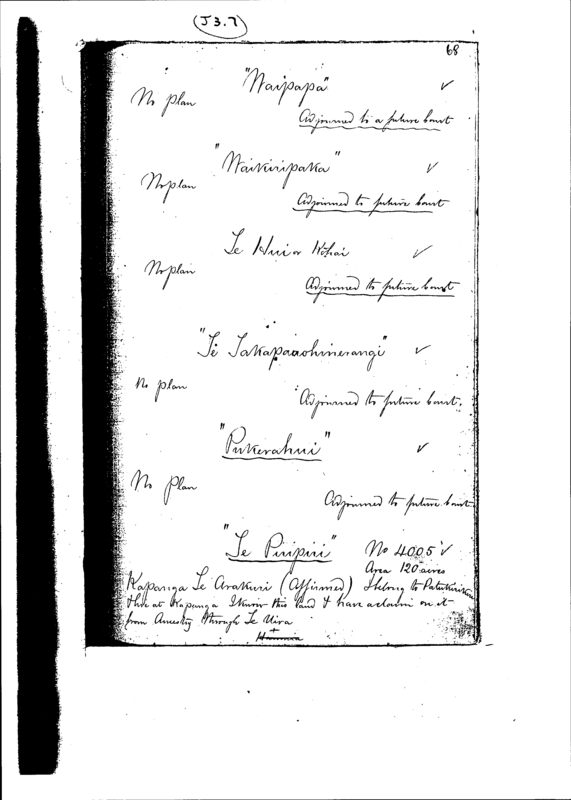 (J 3.7)
68
"Waipapa" ✓
No plan
Adjourned to a future Court
"Waikiripaka" ✓
No plan
Adjourned to future Court
Te Hui or Kohai ✓
No plan
Adjourned to future Court
"Te Takapaaohinerangi" ✓
No plan
Adjourned to future Court.
"Pukerahui" ✓
No Plan
Adjourned to future Court
"Te Piripiri" No 4005 ✓
Area 120 acres
Kapanga Te Arakuri (Affirmed) I belong to Patukirikiri
& live at Kapanga I know this land & have a claim on it
from Ancestry through Te Uira